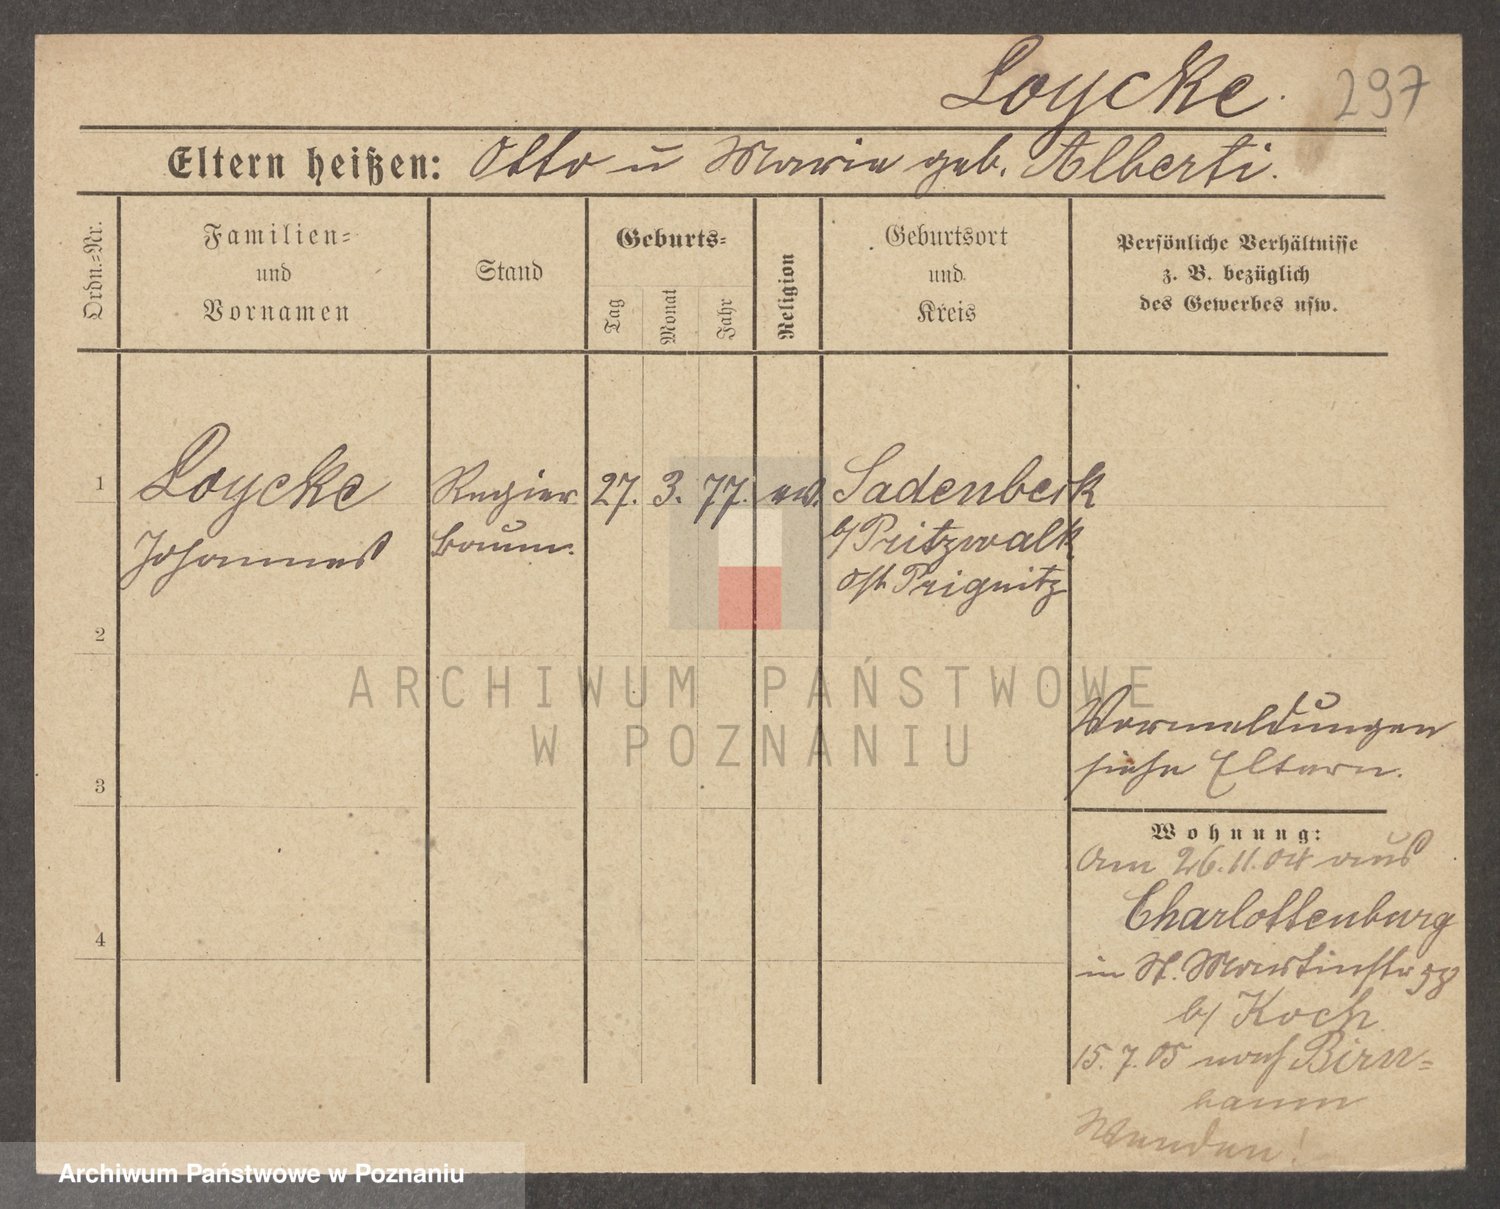 Loycke. 297
Eltern heißen: Otto u Marie geb. Alberti.
Ordn.-Nr.
Familien-
und
Vornamen
Stand
Geburts-
Tag
Monat
Jahr
Religion
Geburtsort
und
Kreis
Persönliche Verhältnisse
z. B. bezüglich
des Gewerbes usw.
1 Loycke Regier 27. 3. 77. ev. Sadenbeck
Johannes baum. b/ Pritzwalk
Ost Prignitz
2
ARCHIWUM PAŃSTWOWE
W POZNANIU
Vormeldungen
siehe Eltern.
3
Wohnung:
Am 26.11.04 aus
Charlottenburg
4
in St. Martinstr
b/ Koch
15.7.05 nach Birn-
baum
Wenden!
Archiwum Państwowe w Poznaniu